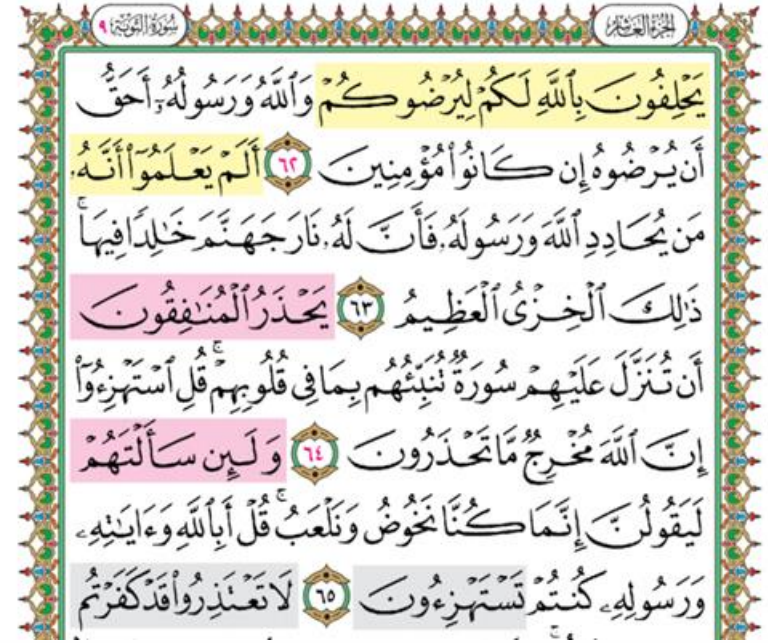 سُورَةُ التَّوْبَةِ ٩ الجُزْءُ العَاشِرُ
يَحْلِفُونَ بِٱللَّهِ لَكُمْ لِيُرْضُوكُمْ وَٱللَّهُ وَرَسُولُهُۥٓ أَحَقُّ
أَن يُرْضُوهُ إِن كَانُوا۟ مُؤْمِنِينَ ٦٢ أَلَمْ يَعْلَمُوٓا۟ أَنَّهُۥ
مَن يُحَادِدِ ٱللَّهَ وَرَسُولَهُۥ فَأَنَّ لَهُۥ نَارَ جَهَنَّمَ خَٰلِدًا فِيهَا ۚ
ذَٰلِكَ ٱلْخِزْىُ ٱلْعَظِيمُ ٦٣ يَحْذَرُ ٱلْمُنَٰفِقُونَ
أَن تُنَزَّلَ عَلَيْهِمْ سُورَةٌ تُنَبِّئُهُم بِمَا فِى قُلُوبِهِمْ ۚ قُلِ ٱسْتَهْزِءُوٓا۟
إِنَّ ٱللَّهَ مُخْرِجٌ مَّا تَحْذَرُونَ ٦٤ وَلَئِن سَأَلْتَهُمْ
لَيَقُولُنَّ إِنَّمَا كُنَّا نَخُوضُ وَنَلْعَبُ ۚ قُلْ أَبِٱللَّهِ وَءَايَٰتِهِۦ
وَرَسُولِهِۦ كُنتُمْ تَسْتَهْزِءُونَ ٦٥ لَا تَعْتَذِرُوا۟ قَدْ كَفَرْتُم